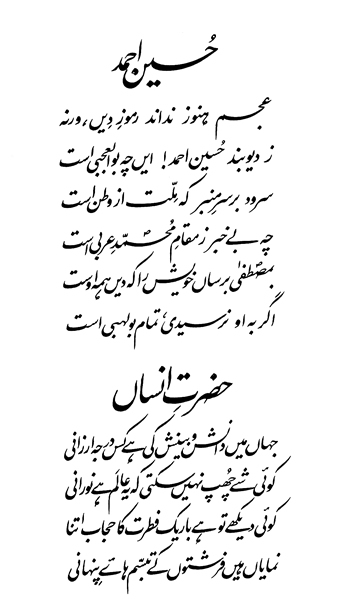 حُسین احمد
عجم ہنوز نداند رموزِ دیں، ورنہ
ز دیوبند حُسین احمد! ایں چہ بوالعجبی است
سرود بر سرِ منبر کہ مِلّت از وطن است
چہ بے خبر ز مقامِ محمدِؐ عربی است
بمصطفیٰؐ برساں خویش را کہ دیں ہمہ اوست
اگر بہ او نرسیدی، تمام بولہبی است
حضرتِ انسان
جہاں میں دانش و بینش کی ہے کس درجہ ارزانی
کوئی شے چھُپ نہیں سکتی کہ یہ عالَم ہے نورانی
کوئی دیکھے تو ہے باریک فطرت کا حجاب اتنا
نمایاں ہیں فرشتوں کے تبسّم ہائے پِنہانی